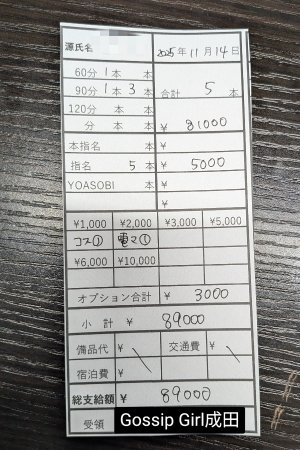 源氏名 2025年11月14日
60分 1本 本
90分 1本 3本 合計 5 本
120分 本
分 本 ¥ 81000
本指名 本 ¥
指名 5 本 ¥ 5000
YOASOBI 本 ¥
¥1,000 ¥2,000 ¥3,000 ¥5,000
コス① 電マ①
¥6,000 ¥10,000
オプション合計 ¥ 3000
小計 ¥ 89000
備品代 ¥ 交通費 ¥
宿泊費 ¥
総支給額 ¥ 89000
受領 Gossip Girl成田